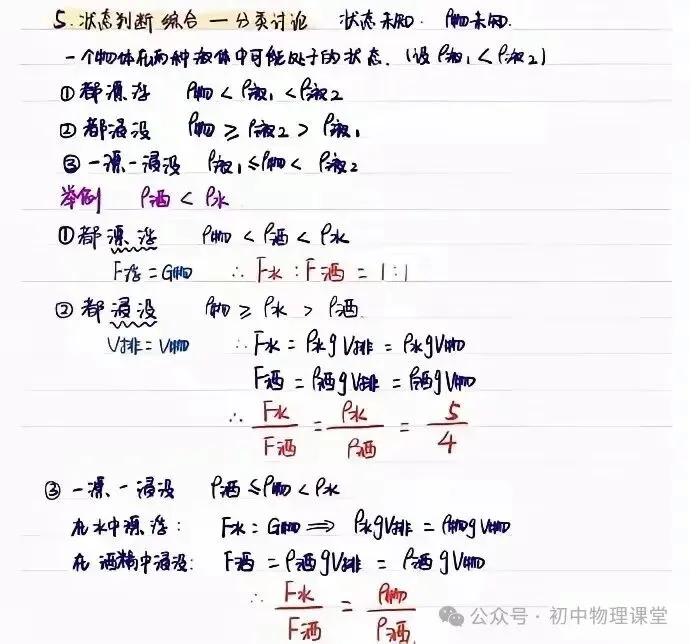 5. 状态判断综合 — 分类讨论 状态未知. ρ物未知.
一个物体在两种液体中可能处于的状态. (设 ρ液1 < ρ液2)
① 都漂浮 ρ物 < ρ液1 < ρ液2
② 都浸没 ρ物 ≥ ρ液2 > ρ液1
③ 一漂一浸没 ρ液1 ≤ ρ物 < ρ液2
举例 ρ酒 < ρ水
① 都漂浮 ρ物 < ρ酒 < ρ水
F浮 = G物 ∴ F水 : F酒 = 1:1
② 都浸没 ρ物 ≥ ρ水 > ρ酒.
V排 = V物 ∴ F水 = ρ水gV排 = ρ水gV物
F酒 = ρ酒gV排 = ρ酒gV物
∴ F水/F酒 = ρ水/ρ酒 = 5/4
③ 一漂一浸没 ρ酒 ≤ ρ物 < ρ水
在水中漂浮: F水 = G物 ⟹ ρ水gV排 = ρ物gV物
在酒精中浸没: F酒 = ρ酒gV排 = ρ酒gV物
∴ F水/F酒 = ρ物/ρ酒
公众号 · 初中物理课堂